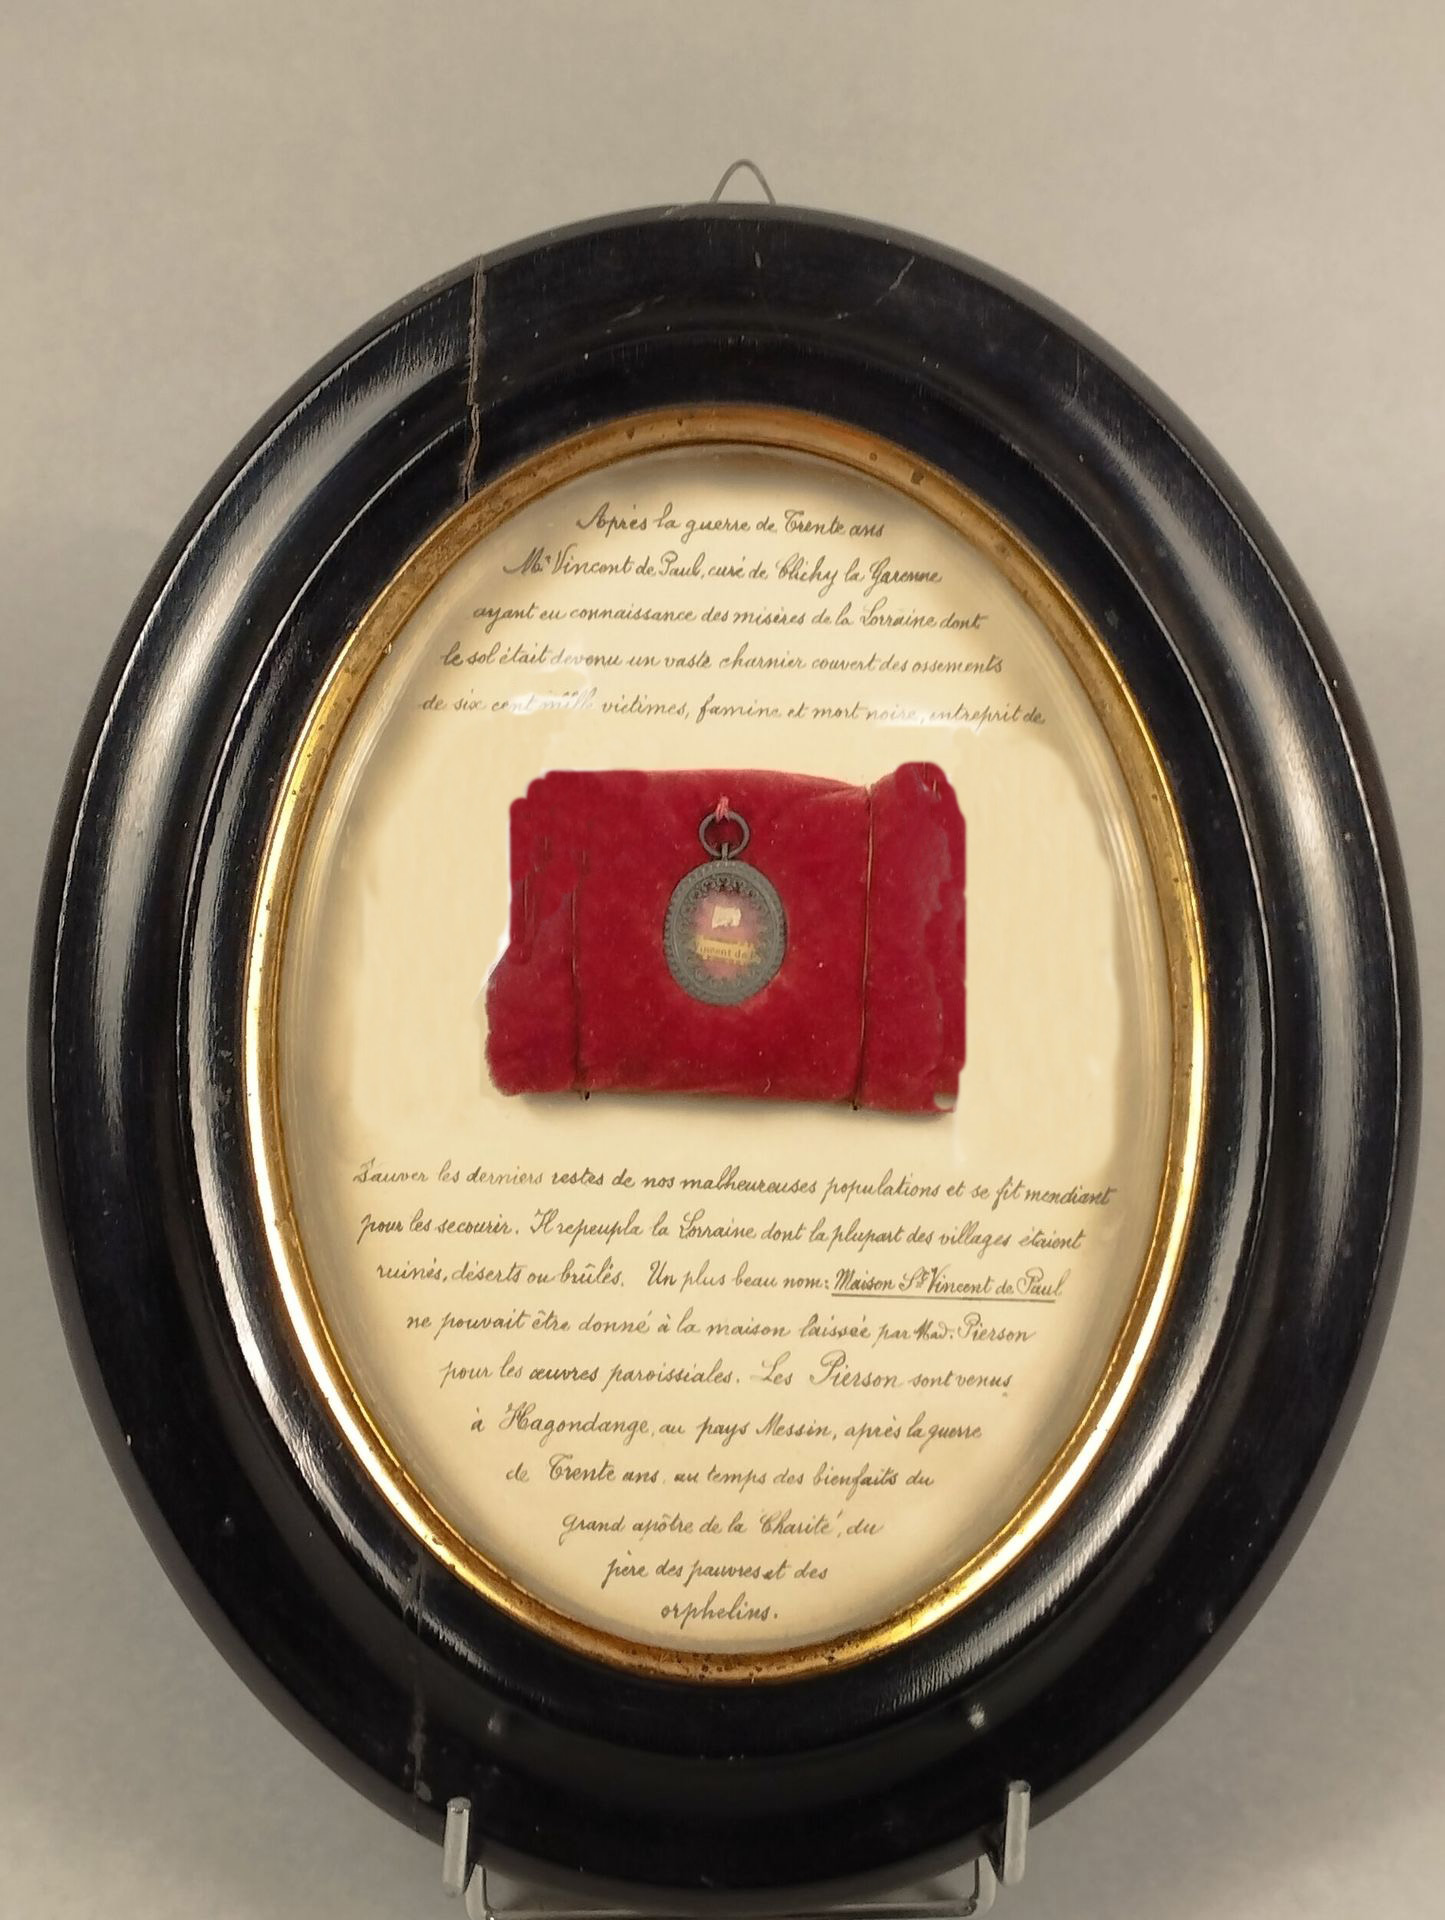 Après la guerre de Trente ans
Mr Vincent de Paul, curé de Clichy la Garenne
ayant eu connaissance des misères de la Lorraine dont
le sol était devenu un vaste charnier couvert des ossements
de six cent mille victimes, famine et mort noire, entreprit de
incent de P
Sauver les derniers restes de nos malheureuses populations et se fit mendiant
pour les secourir. Il repeupla la Lorraine dont la plupart des villages étaient
ruinés, déserts ou brûlés. Un plus beau nom: Maison St Vincent de Paul
ne pouvait être donné à la maison laissée par Mad. Pierson
pour les œuvres paroissiales. Les Pierson sont venus
à Hagondange, au pays Messin, après la guerre
de Trente ans, au temps des bienfaits du
grand apôtre de la Charité, du
père des pauvres et des
orphelins.